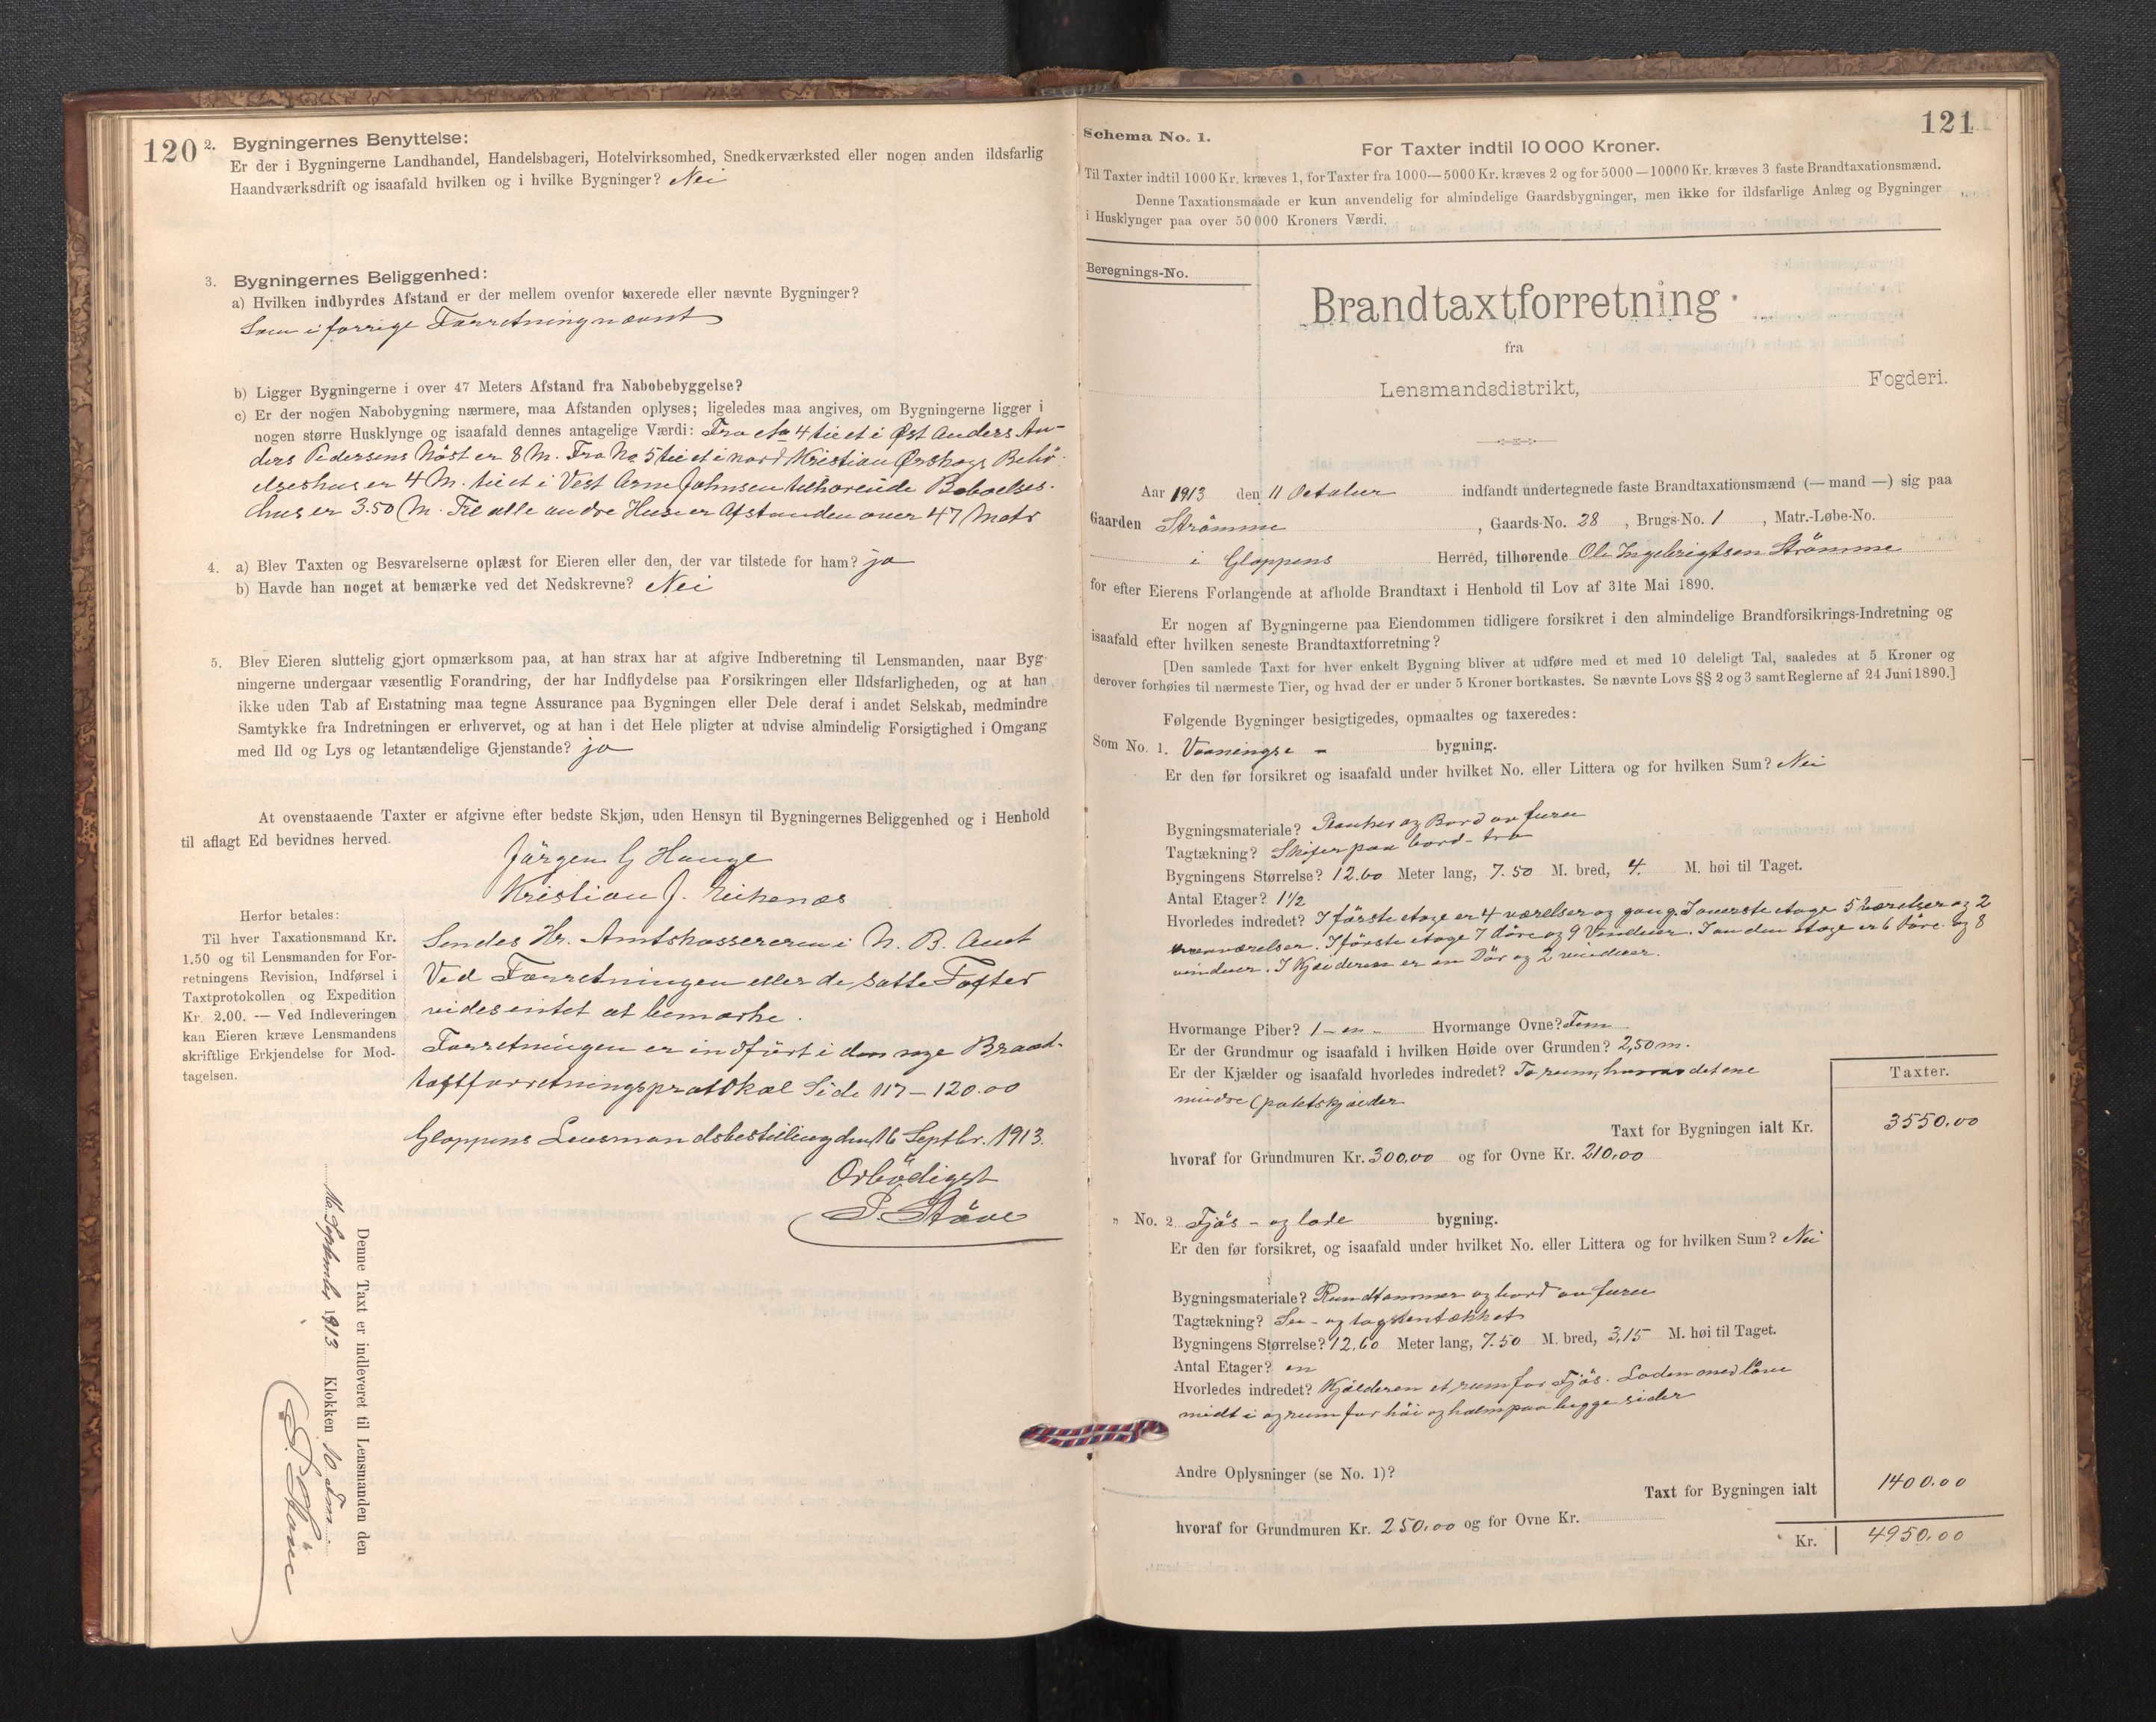 120
2. Bygningernes Benyttelse:
Er der i Bygningerne Landhandel, Handelsbageri, Hotelvirksomhed, Snedkerværksted eller nogen anden ildsfarlig
Haandværksdrift og isaafald hvilken og i hvilke Bygninger? Nei
3. Bygningernes Beliggenhed:
a) Hvilken indbyrdes Afstand er der mellem ovenfor taxerede eller nævnte Bygninger?
Som i forrige Forretning nævnt
b) Ligger Bygningerne i over 47 Meters Afstand fra Nabobebyggelse?
c) Er der nogen Nabobygning nærmere, maa Afstanden oplyses; ligeledes maa angives, om Bygningerne ligger i
nogen større Husklynge og isaafald dennes antagelige Værdi: Fra No 4 til et i Øst Anders An-
ders Pedersens Nöst er 8 M. Fra No 5 til et i nord Kristian Ørskogs Bebo-
elseshus er 4 M. til et i Vest Arne Johnsen tilhorende Beboelses-
hus er 3.50 M. Til alle andre Huse er Afstanden over 47 Metr
4. a) Blev Taxten og Besvarelserne oplæst for Eieren eller den, der var tilstede for ham? ja
b) Havde han noget at bemærke ved det Nedskrevne? Nei
5. Blev Eieren sluttelig gjort opmærksom paa, at han strax har at afgive Indberetning til Lensmanden, naar Byg-
ningerne undergaar væsentlig Forandring, der har Indflydelse paa Forsikringen eller Ildsfarligheden, og at han
ikke uden Tab af Erstatning maa tegne Assurance paa Bygningen eller Dele deraf i andet Selskab, medmindre
Samtykke fra Indretningen er erhvervet, og at han i det Hele pligter at udvise almindelig Forsigtighed i Omgang
med Ild og Lys og letantændelige Gjenstande? ja
At ovenstaaende Taxter er afgivne efter bedste Skjøn, uden Hensyn til Bygningernes Beliggenhed og i Henhold
til aflagt Ed bevidnes herved.
Jörgen G Hauge
Kristian J. Eikenæs
Herfor betales:
Til hver Taxationsmand Kr.
1.50 og til Lensmanden for For-
retningens Revision, Indførsel i
Taxtprotokollen og Expedition
Kr. 2.00. — Ved Indleveringen
kan Eieren kræve Lensmandens
skriftlige Erkjendelse for Mod-
tagelsen.
Sendes Hr. Amtskassereren i N. B. Amt
Ved Forretningen eller de satte Taxter
vides intet at bemærke.
Forretningen er indført i den nye Brand-
taxtforretningsprotokol Side 117 – 120.00
Gloppens Lensmandsbestilling den 16 Septbr. 1913.
Ærbödigst
P. Støve
Denne Taxt er indleveret til Lensmanden den
16. September 1913 Klokken 10 Fm.
121
Schema No. 1.
For Taxter indtil 10 000 Kroner.
Til Taxter indtil 1000 Kr. kræves 1, for Taxter fra 1000—5000 Kr. kræves 2 og for 5000—10000 Kr. kræves 3 faste Brandtaxationsmænd.
Denne Taxationsmaade er kun anvendelig for almindelige Gaardsbygninger, men ikke for ildsfarlige Anlæg og Bygninger
i Husklynger paa over 50 000 Kroners Værdi.
Beregnings-No.
Brandtaxtforretning
fra
Lensmandsdistrikt, Fogderi.
Aar 1913 den 11 October indfandt undertegnede faste Brandtaxationsmænd (— mand —) sig paa
Gaarden Strömme, Gaards-No. 28, Brugs-No. 1, Matr.-Løbe-No.
i Gloppens Herred, tilhørende Ole Ingebrigtsen Strömme
for efter Eierens Forlangende at afholde Brandtaxt i Henhold til Lov af 31te Mai 1890.
Er nogen af Bygningerne paa Eiendommen tidligere forsikret i den almindelige Brandforsikrings-Indretning og
isaafald efter hvilken seneste Brandtaxtforretning?
[Den samlede Taxt for hver enkelt Bygning bliver at udføre med et med 10 deleligt Tal, saaledes at 5 Kroner og
derover forhøies til nærmeste Tier, og hvad der er under 5 Kroner bortkastes. Se nævnte Lovs §§ 2 og 3 samt Reglerne af 24 Juni 1890.]
Følgende Bygninger besigtigedes, opmaaltes og taxeredes:
Som No. 1. Vaanings - bygning.
Er den før forsikret og isaafald under hvilket No. eller Littera og for hvilken Sum? Nei
Bygningsmateriale? Planker og Bord av furu
Tagtækning? Skifer paa bord-tro
Bygningens Størrelse? 12.60 Meter lang, 7.50 M. bred, 4. M. høi til Taget.
Antal Etager? 1½
Hvorledes indredet? I förste etage er 4 værelser og gang. I överste etage 5 værelser og 2
værelser. I förste etage 7 döre og 9 Vinduer. I anden etage er 6 Döre og 8
vinduer. I Kjælderen er en Dör og 2 vinduer.
Hvormange Piber? 1 – en – Hvormange Ovne? Fem
Er der Grundmur og isaafald i hvilken Høide over Grunden? 2,50 m.
Er der Kjælder og isaafald hvorledes indredet? To rum, hvorav det ene
mindre (potetskjælder
Taxter.
Taxt for Bygningen ialt Kr. 3550.00
hvoraf for Grundmuren Kr. 300.00 og for Ovne Kr. 210.00
" No. 2. Fjös - og lade bygning.
Er den før forsikret, og isaafald under hvilket No. eller Littera og for hvilken Sum? Nei
Bygningsmateriale? Rundtømmer og bord av furu
Tagtækning? Su - og tagstentækket
Bygningens Størrelse? 12.60 Meter lang, 7.50 M. bred, 3,15 M. høi til Taget.
Antal Etager? en
Hvorledes indredet? Kjælderen et rum for Fjös. Laden med låve
midt i og rum for höi og halm paa begge sider
Andre Oplysninger (se No. 1)?
Taxt for Bygningen ialt 1400.00
hvoraf for Grundmuren Kr. 250.00 og for Ovne Kr.
Kr. 4950.00